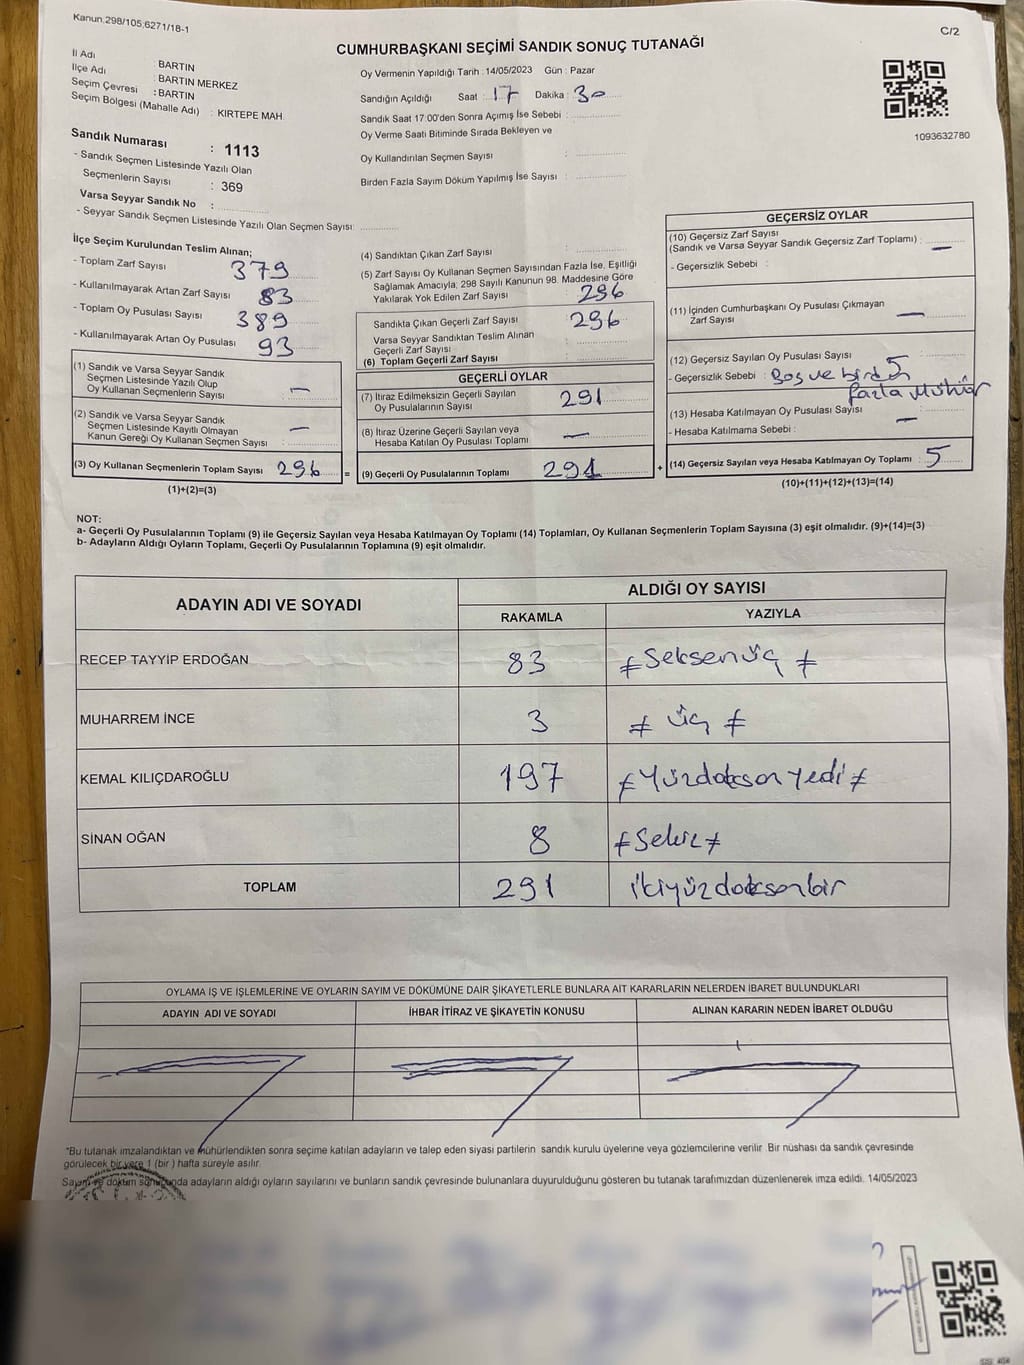 Kanun.298/105;6271/18-1
C/2
CUMHURBAŞKANI SEÇİMİ SANDIK SONUÇ TUTANAĞI
İl Adı : BARTIN
İlçe Adı : BARTIN MERKEZ
Seçim Çevresi : BARTIN
Seçim Bölgesi (Mahalle Adı) : KIRTEPE MAH.
Oy Vermenin Yapıldığı Tarih : 14/05/2023 Gün : Pazar
Sandığın Açıldığı Saat : 17 Dakika : 30
Sandık Saat 17:00'den Sonra Açımış İse Sebebi :
Oy Verme Saati Bitiminde Sırada Bekleyen ve
Oy Kullandırılan Seçmen Sayısı :
Birden Fazla Sayım Döküm Yapılmış İse Sayısı :
1093632780
Sandık Numarası : 1113
- Sandık Seçmen Listesinde Yazılı Olan
Seçmenlerin Sayısı : 369
Varsa Seyyar Sandık No :
- Seyyar Sandık Seçmen Listesinde Yazılı Olan Seçmen Sayısı:
İlçe Seçim Kurulundan Teslim Alınan;
- Toplam Zarf Sayısı 379
- Kullanılmayarak Artan Zarf Sayısı 83
- Toplam Oy Pusulası Sayısı 389
- Kullanılmayarak Artan Oy Pusulası 93
(1) Sandık ve Varsa Seyyar Sandık
Seçmen Listesinde Yazılı Olup
Oy Kullanan Seçmenlerin Sayısı : —
(2) Sandık ve Varsa Seyyar Sandık
Seçmen Listesinde Kayıtlı Olmayan
Kanun Gereği Oy Kullanan Seçmen Sayısı : —
(3) Oy Kullanan Seçmenlerin Toplam Sayısı 296 =
(1)+(2)=(3)
(4) Sandıktan Çıkan Zarf Sayısı :
(5) Zarf Sayısı Oy Kullanan Seçmen Sayısından Fazla İse, Eşitliği
Sağlamak Amacıyla; 298 Sayılı Kanunun 98. Maddesine Göre
Yakılarak Yok Edilen Zarf Sayısı : 296
Sandıkta Çıkan Geçerli Zarf Sayısı : 296
Varsa Seyyar Sandıktan Teslim Alınan
Geçerli Zarf Sayısı :
(6) Toplam Geçerli Zarf Sayısı :
GEÇERLİ OYLAR
(7) İtiraz Edilmeksizin Geçerli Sayılan
Oy Pusulasının Sayısı : 291
(8) İtiraz Üzerine Geçerli Sayılan veya
Hesaba Katılan Oy Pusulası Toplamı : —
(9) Geçerli Oy Pusulalarının Toplamı : 291 +
GEÇERSİZ OYLAR
(10) Geçersiz Zarf Sayısı
(Sandık ve Varsa Seyyar Sandık Geçersiz Zarf Toplamı) : —
- Geçersizlik Sebebi :
(11) İçinden Cumhurbaşkanı Oy Pusulası Çıkmayan
Zarf Sayısı : —
(12) Geçersiz Sayılan Oy Pusulası Sayısı : 5
- Geçersizlik Sebebi : Boş ve birden
fazla Mühür
(13) Hesaba Katılmayan Oy Pusulası Sayısı : —
- Hesaba Katılmama Sebebi :
(14) Geçersiz Sayılan veya Hesaba Katılmayan Oy Toplamı : 5
(10)+(11)+(12)+(13)=(14)
NOT:
a- Geçerli Oy Pusulalarının Toplamı (9) ile Geçersiz Sayılan veya Hesaba Katılmayan Oy Toplamı (14) Toplamları, Oy Kullanan Seçmenlerin Toplam Sayısına (3) eşit olmalıdır. (9)+(14)=(3)
b- Adayların Aldığı Oyların Toplamı, Geçerli Oy Pusulalarının Toplamına (9) eşit olmalıdır.
ADAYIN ADI VE SOYADI ALDIĞI OY SAYISI
RAKAMLA YAZIYLA
RECEP TAYYİP ERDOĞAN 83 ≠ Seksenüç ≠
MUHARREM İNCE 3 ≠ üç ≠
KEMAL KILIÇDAROĞLU 197 ≠ Yüzdoksan yedi ≠
SİNAN OĞAN 8 ≠ Sekiz ≠
TOPLAM 291 ikiyüzdoksanbir
OYLAMA İŞ VE İŞLEMLERİNE VE OYLARIN SAYIM VE DÖKÜMÜNE DAİR ŞİKAYETLERLE BUNLARA AİT KARARLARIN NELERDEN İBARET BULUNDUKLARI
ADAYIN ADI VE SOYADI İHBAR İTİRAZ VE ŞİKAYETİN KONUSU ALINAN KARARIN NEDEN İBARET OLDUĞU
*Bu tutanak imzalandıktan ve mühürlendikten sonra seçime katılan adayların ve talep eden siyasi partilerin sandık kurulu üyelerine veya gözlemcilerine verilir. Bir nüshası da sandık çevresinde
görülecek bir yere 1 (bir ) hafta süreyle asılır.
Sayım ve döküm sonucunda adayların aldığı oyların sayılarını ve bunların sandık çevresinde bulunanlara duyurulduğunu gösteren bu tutanak tarafımızdan düzenlenerek imza edildi. 14/05/2023